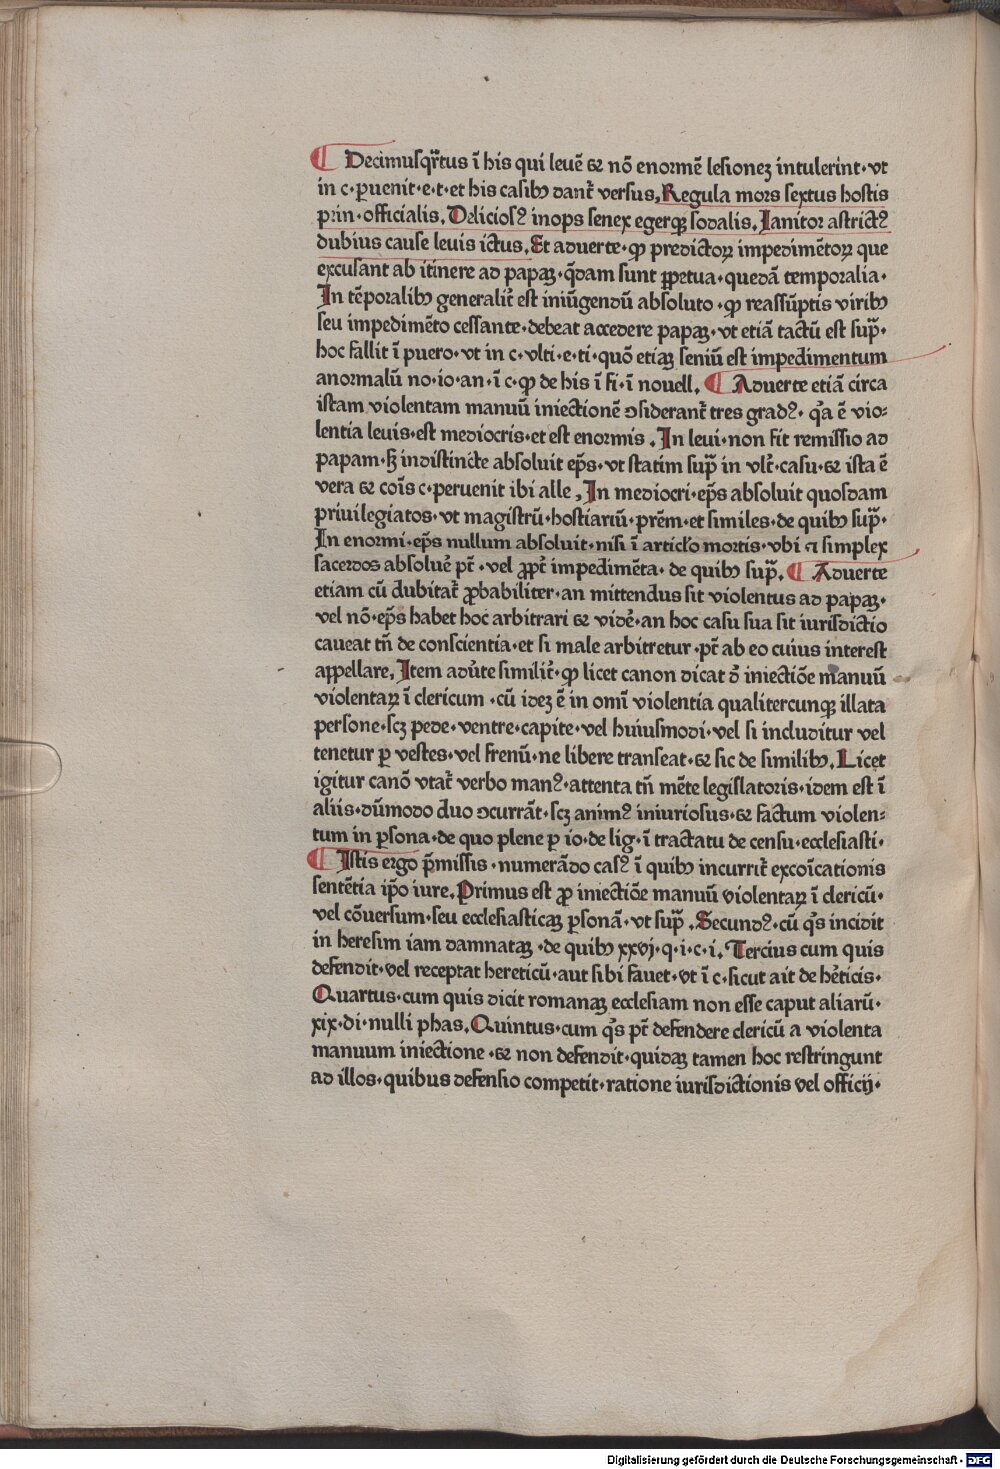 ¶ Decimusqr̃tus ĩ his qui leuẽ ⁊ nõ enormẽ lesionez intulerint · vt
in c · ꝑuenit · e · t · et his casibꝰ dant̃ versus, Regula mors sextus hostis
prin · officialis. Delicios⁹ inops senex egerqꝫ sodalis. Ianitor astrict⁹
dubius cause leuis ictus. Et aduerte · ꝙ predictoꝝ impedimẽtoꝝ que
excusant ab itinere ad papaꝫ · q̃dam sunt ꝑpetua · quedã temporalia ·
In tẽporalibꝰ generalit̃ est iniũgendũ absoluto · ꝙ reassũptis viribꝰ
seu impedimẽto cessante · debeat accedere papaꝫ · vt etiã tactũ est sup̃ ·
hoc fallit ĩ puero · vt in c · vlti · e · ti · quõ etiaꝫ seniũ est impedimentum
anormalũ no · io · an · ĩ c · ꝙ de his ĩ fi · ĩ nouell. ¶ Aduerte etiã circa
istam violentam manuũ iniectionẽ ꝯsiderant̃ tres grad⁹ · q̃a ẽ vio⸗
lentia leuis · est mediocris · et est enormis . In leui · non fit remissio ad
papam · sꝫ indistincte absoluit ep̃s · vt statim sup̃ in vlt̃ · casu · ⁊ ista ẽ
vera ⁊ cõis c · peruenit ibi alle , In mediocri · ep̃s absoluit quosdam
priuilegiatos · vt magistrũ · hostiariũ · prẽm · et similes · de quibꝰ sup̃ ·
In enormi · ep̃s nullum absoluit · nisi ĩ articl̃o mortis · vbi ⁊ simplex
sacerdos absoluẽ pt̃ · vel ꝓpt̃ impedimẽta · de quibꝰ sup̃. ¶ Aduerte
etiam cũ dubitat̃ ꝓbabiliter · an mittendus sit violentus ad papaꝫ ·
vel nõ · ep̃s habet hoc arbitrari ⁊ vidẽ · an hoc casu sua sit iurisdictio
caueat tñ de conscientia · et si male arbitretur · pt̃ ab eo cuius interest
appellare. Item adũte similit̃ · ꝙ licet canon dicat d̃ iniectiõe manuũ
violentaꝝ ĩ clericum · cũ ideꝫ ẽ in omĩ violentia qualitercunqꝫ illata
persone · scꝫ pede · ventre · capite · vel huiusmodi · vel si includitur vel
tenetur ꝑ vestes · vel frenũ · ne libere transeat · ⁊ sic de similibꝰ. Licet
igitur canõ vtat̃ verbo man⁹ · attenta tñ mẽte legislatoris · idem est ĩ
aliis · dũmodo duo ꝯcurrãt · scꝫ anim⁹ iniuriosus · ⁊ factum violen⸗
tum in ꝑsona · de quo plene ꝑ io · de lig · ĩ tractatu de censu · ecclesiasti ·
¶ Istis ergo p̃missis · numerãdo cas⁹ ĩ quibꝰ incurrit̃ excoĩcationis
sentẽtia ip̃o iure. Primus est ꝓ iniectiõe manuũ violentaꝝ ĩ clericũ ·
vel cõuersum · seu ecclesiasticaꝫ ꝑsonã · vt sup̃ . Secund⁹ · cũ q̃s incidit
in heresim iam damnataꝫ · de quibꝰ xxvj · q · i · c · i. Tercius cum quis
defendit · vel receptat hereticũ · aut sibi fauet · vt ĩ c · sicut ait de hẽticis ·
Quartus · cum quis dicit romanaꝫ ecclesiam non esse caput aliarũ ·
xix · di · nulli phas. Quintus · cum q̃s pt̃ defendere clericũ a violenta
manuum iniectione · ⁊ non defendit · quidaꝫ tamen hoc restringunt
ad illos · quibus defensio competit · ratione iurisdictionis vel officij ·
Digitalisierung gefördert durch die Deutsche Forschungsgemeinschaft - DFG